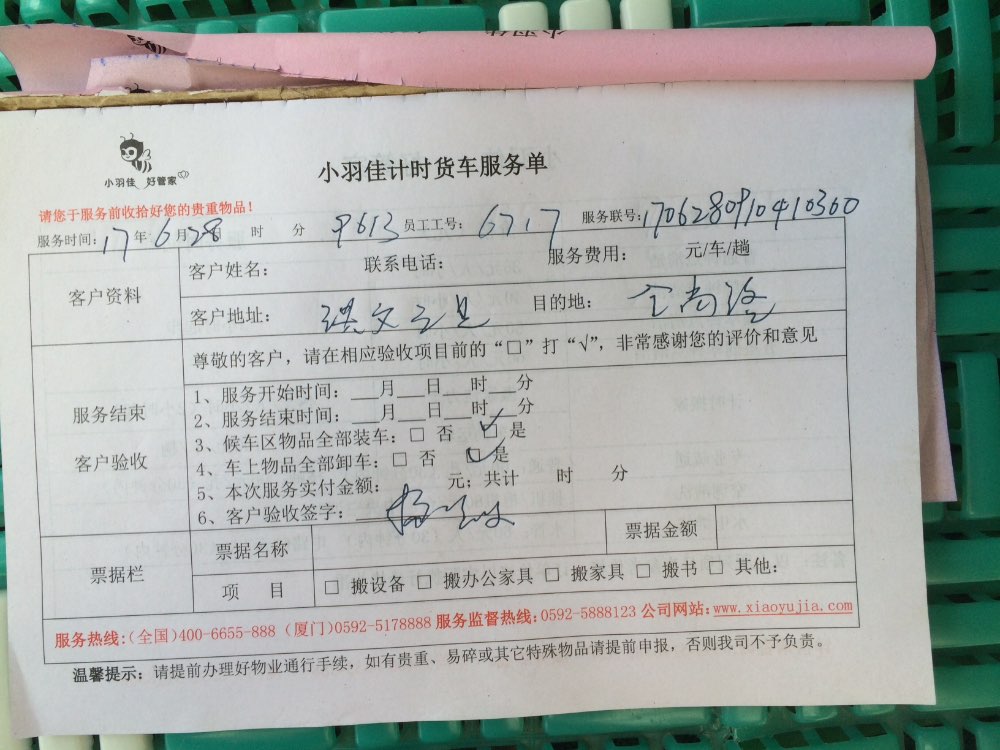 小羽佳 好管家
小羽佳计时货车服务单
请您于服务前收拾好您的贵重物品！
服务时间：17年6月28日 时 分 9613 员工工号：6717 服务联号：170628091041036​0
客户资料
客户姓名： 联系电话： 服务费用： 元/车/趟
客户地址： 洪文 目的地：
服务结束
客户验收
尊敬的客户，请在相应验收项目前的“□”打“√”，非常感谢您的评价和意见
1、服务开始时间：__月__日__时__分
2、服务结束时间：__月__日__时__分
3、候车区物品全部装车：□ 否 ☑ 是
4、车上物品全部卸车：□ 否 ☑ 是
5、本次服务实付金额： 元；共计 时 分
6、客户验收签字：
票据栏
票据名称 票据金额
项 目 □ 搬设备 □ 搬办公家具 □ 搬家具 □ 搬书 □ 其他：
服务热线:(全国)400-6655-888 (厦门)0592-5178888 服务监督热线:0592-5888123 公司网站:www.xiaoyujia.com
温馨提示：请提前办理好物业通行手续，如有贵重、易碎或其它特殊物品请提前申报，否则我司不予负责。